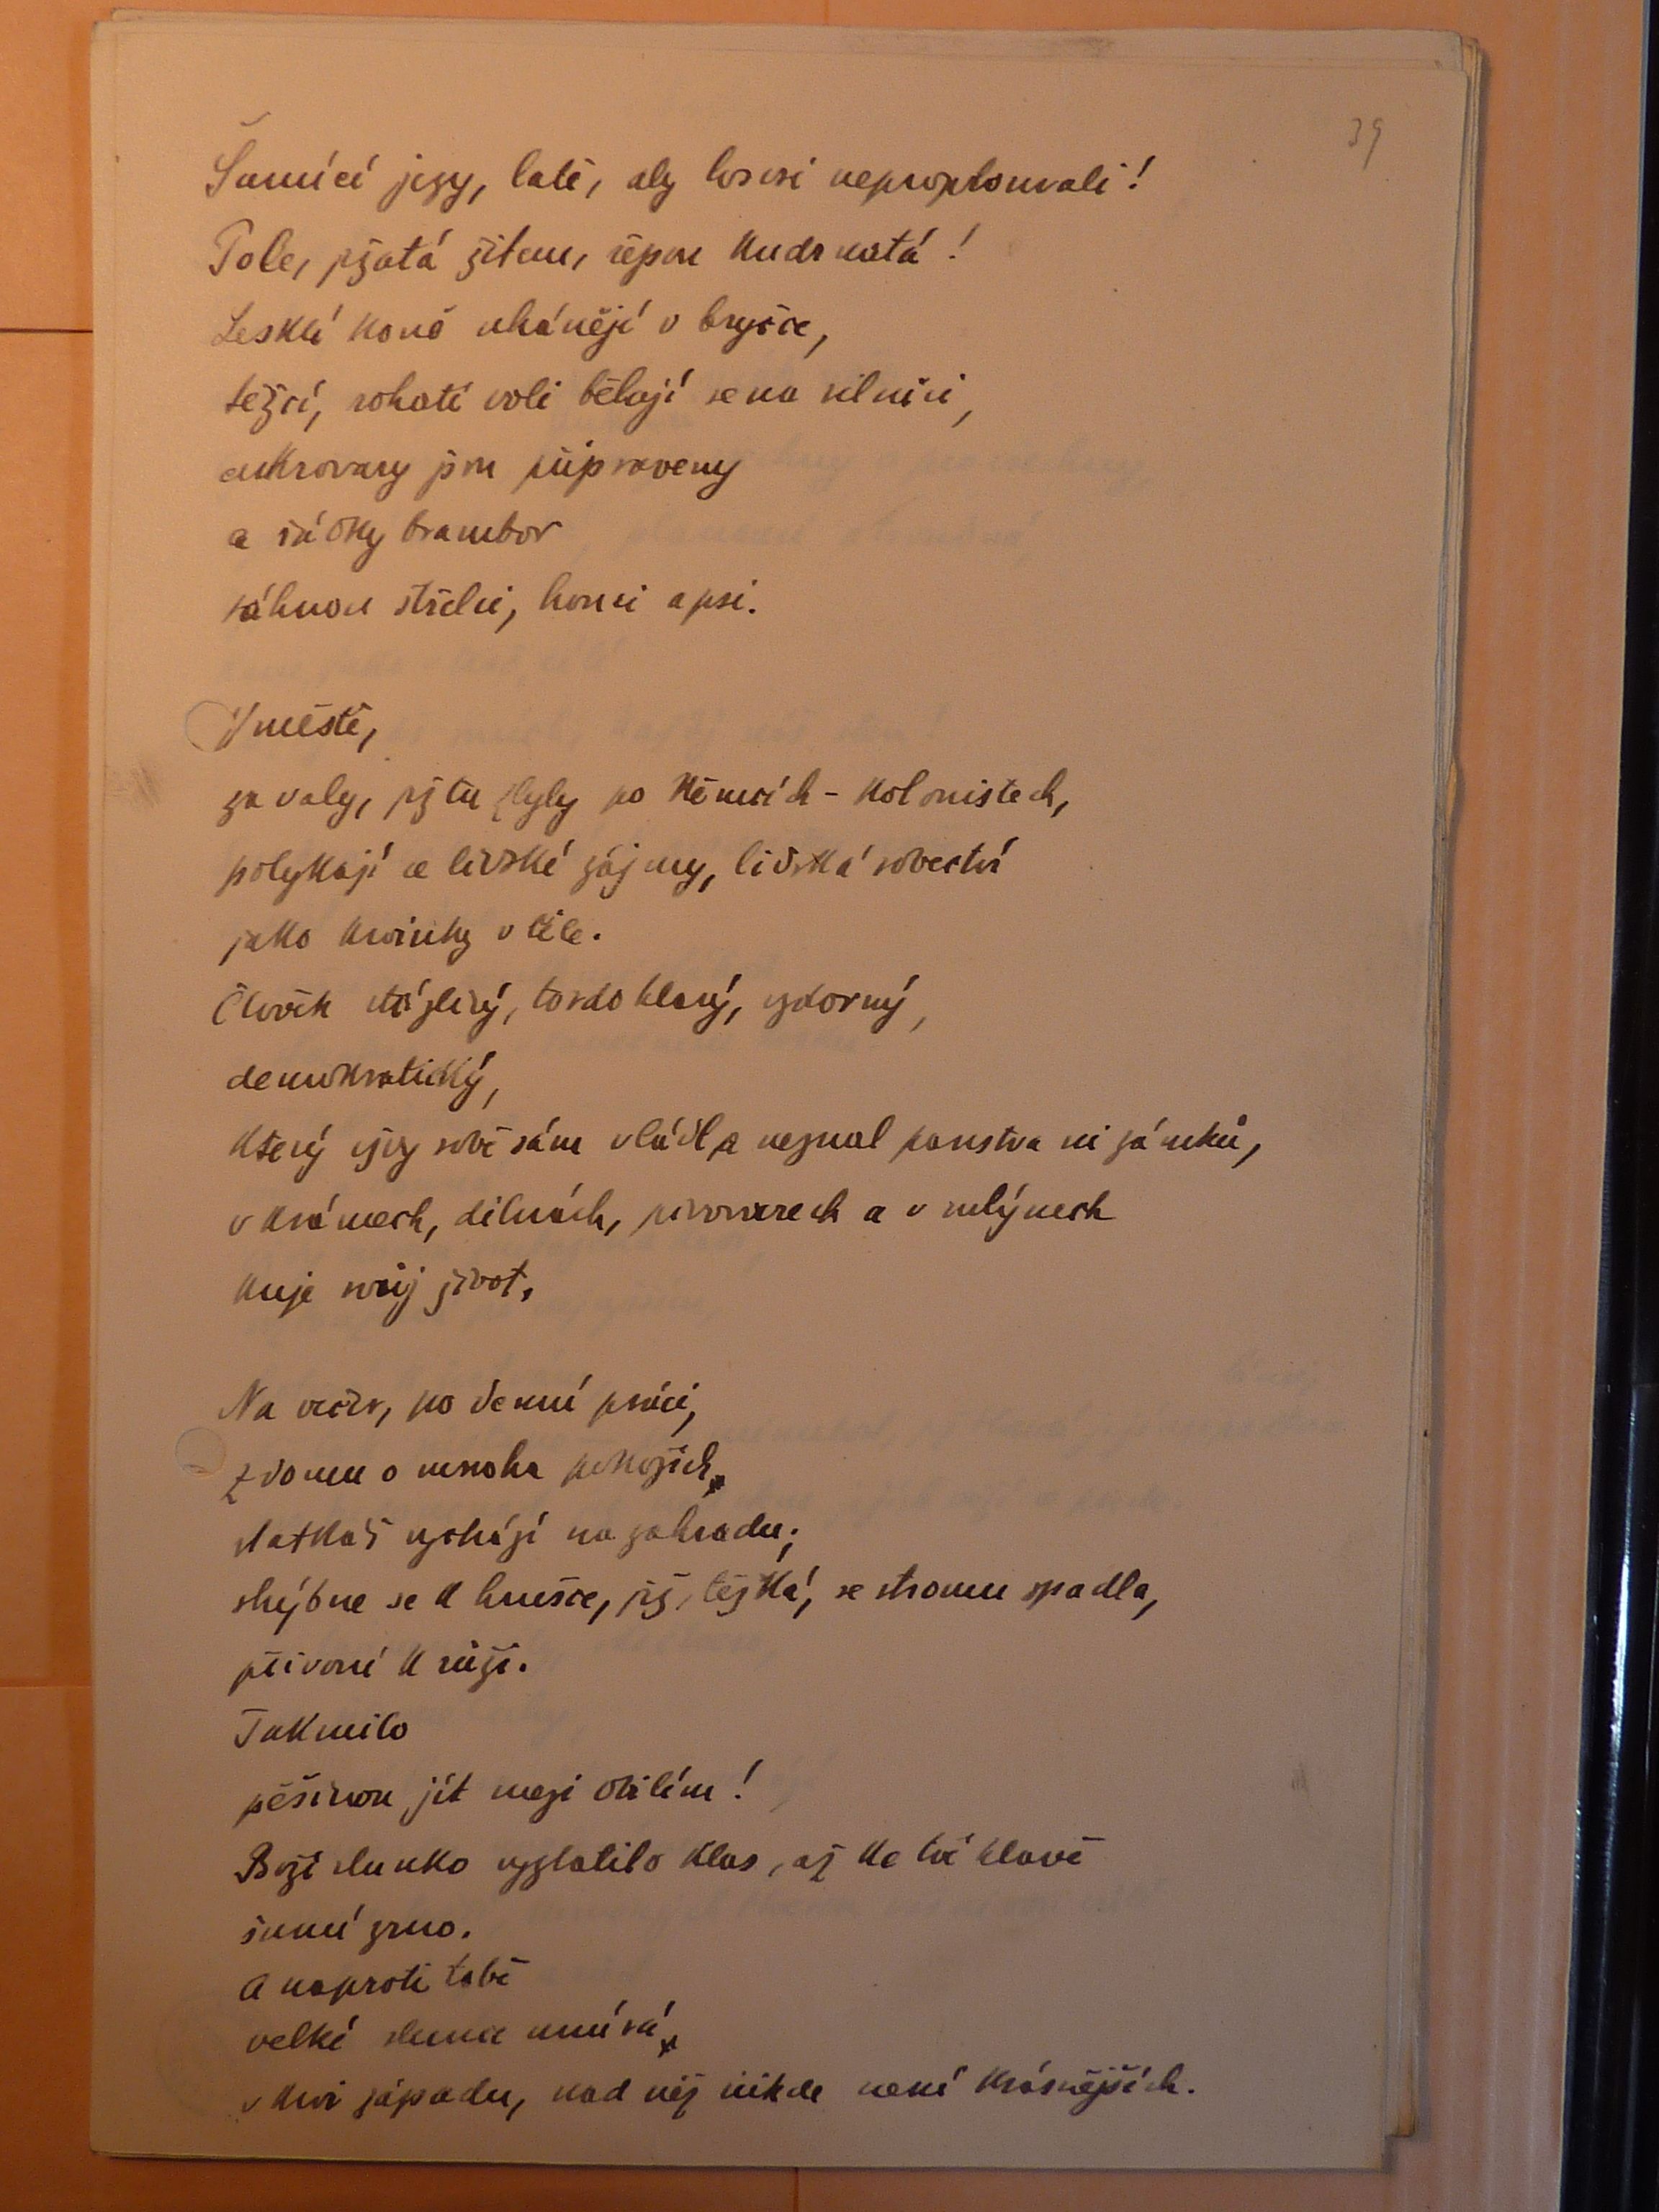 39
Šumící jezy, latě, aby lososi neproplouvali!
Pole, pšatá žitem, řepou kudrnatá!
Lesklí koně uhánějí v bryčce,
těžcí, rohatí voli bělají se na silnici,
cukrovary jsou připraveny
a řádky brambor
táhnou střelci, honci a psi.
V městě,
za valy, jež tu zbyly po Němcích-kolonistech,
potýkají se lidské zájmy, lidská sobectví
jako krvinky v těle.
Člověk strážlivý, tvrdohlavý, vzdorný,
demokratický,
který vždy sobě sám vládl a neznal panstva ni zámků,
v krámech, dílnách, pivovarech a v mlýnech
kuje svůj život.
Na večer, po denní práci,
z domu o mnoha pokojích
statkář vychází na zahradu;
shýbne se k hrušce, jež, těžká, se stromu spadla,
přivoní k růži.
Tak milo
pěšinou jít mezi obilím!
Boží slunko vyzlatilo klas, až ke tvé hlavě
šumí zrno.
A naproti tobě
velké slunce umírá
v krvi západu, nad nějž nikde není krásnějších.